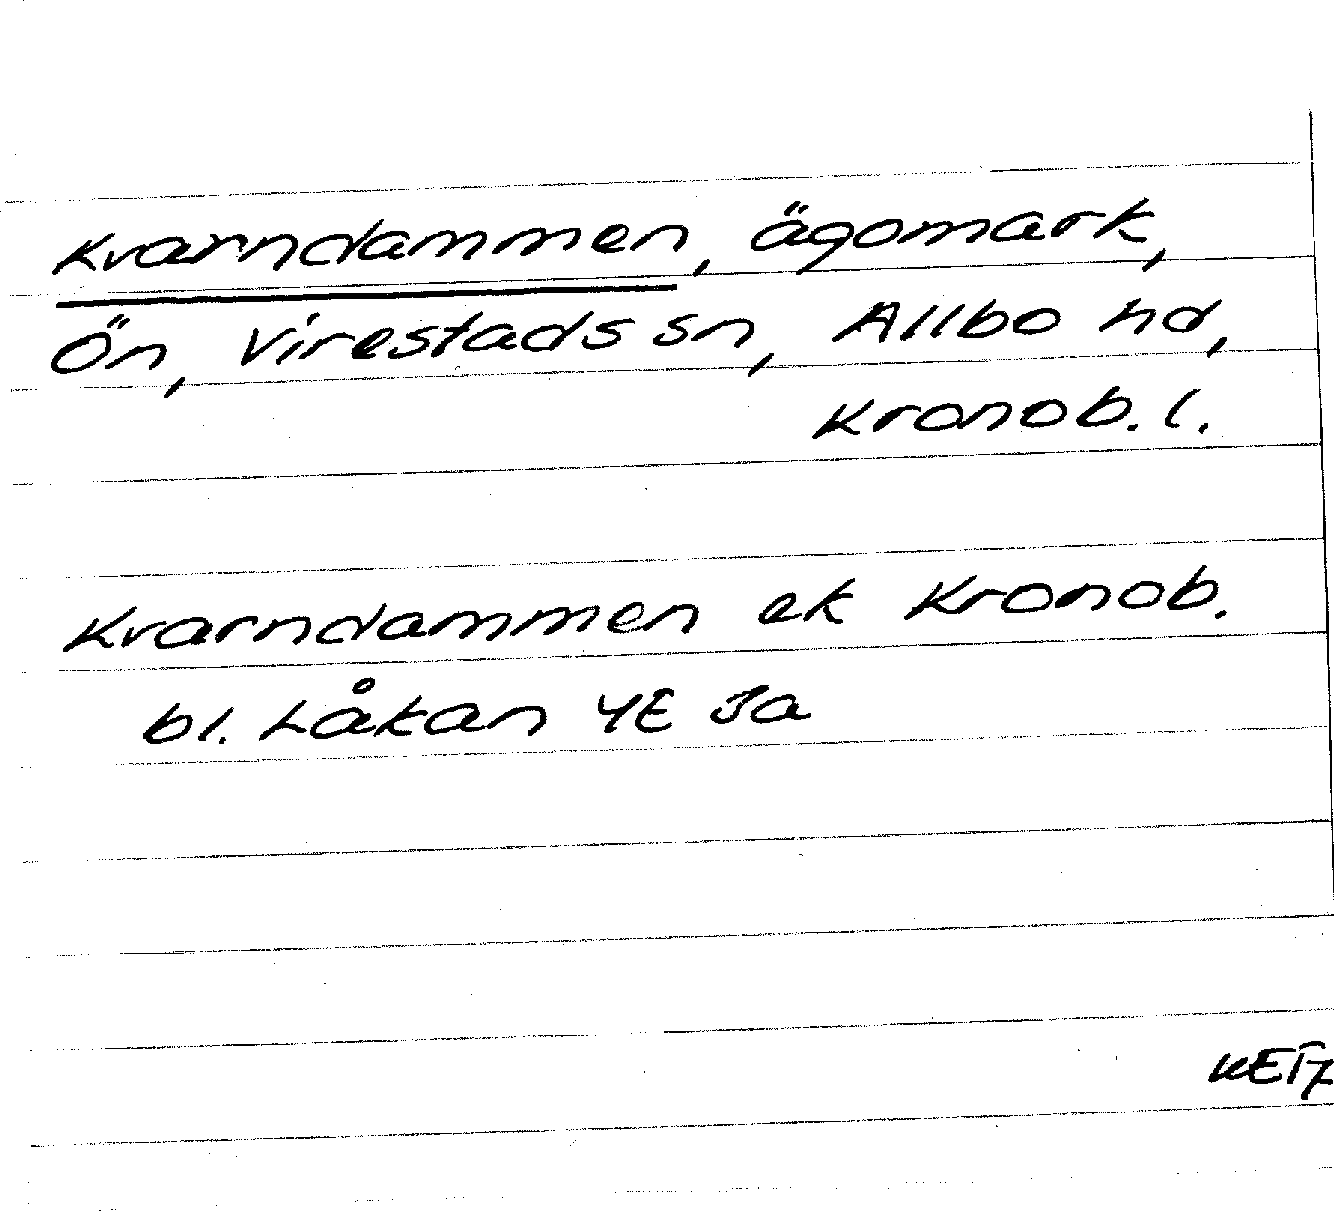 Kvarndammen, ägomark,
Ön, Virestads sn, Allbo hd,
Kronob. l.
Kvarndammen ek Kronob.
bl. Låkan 4E Ja